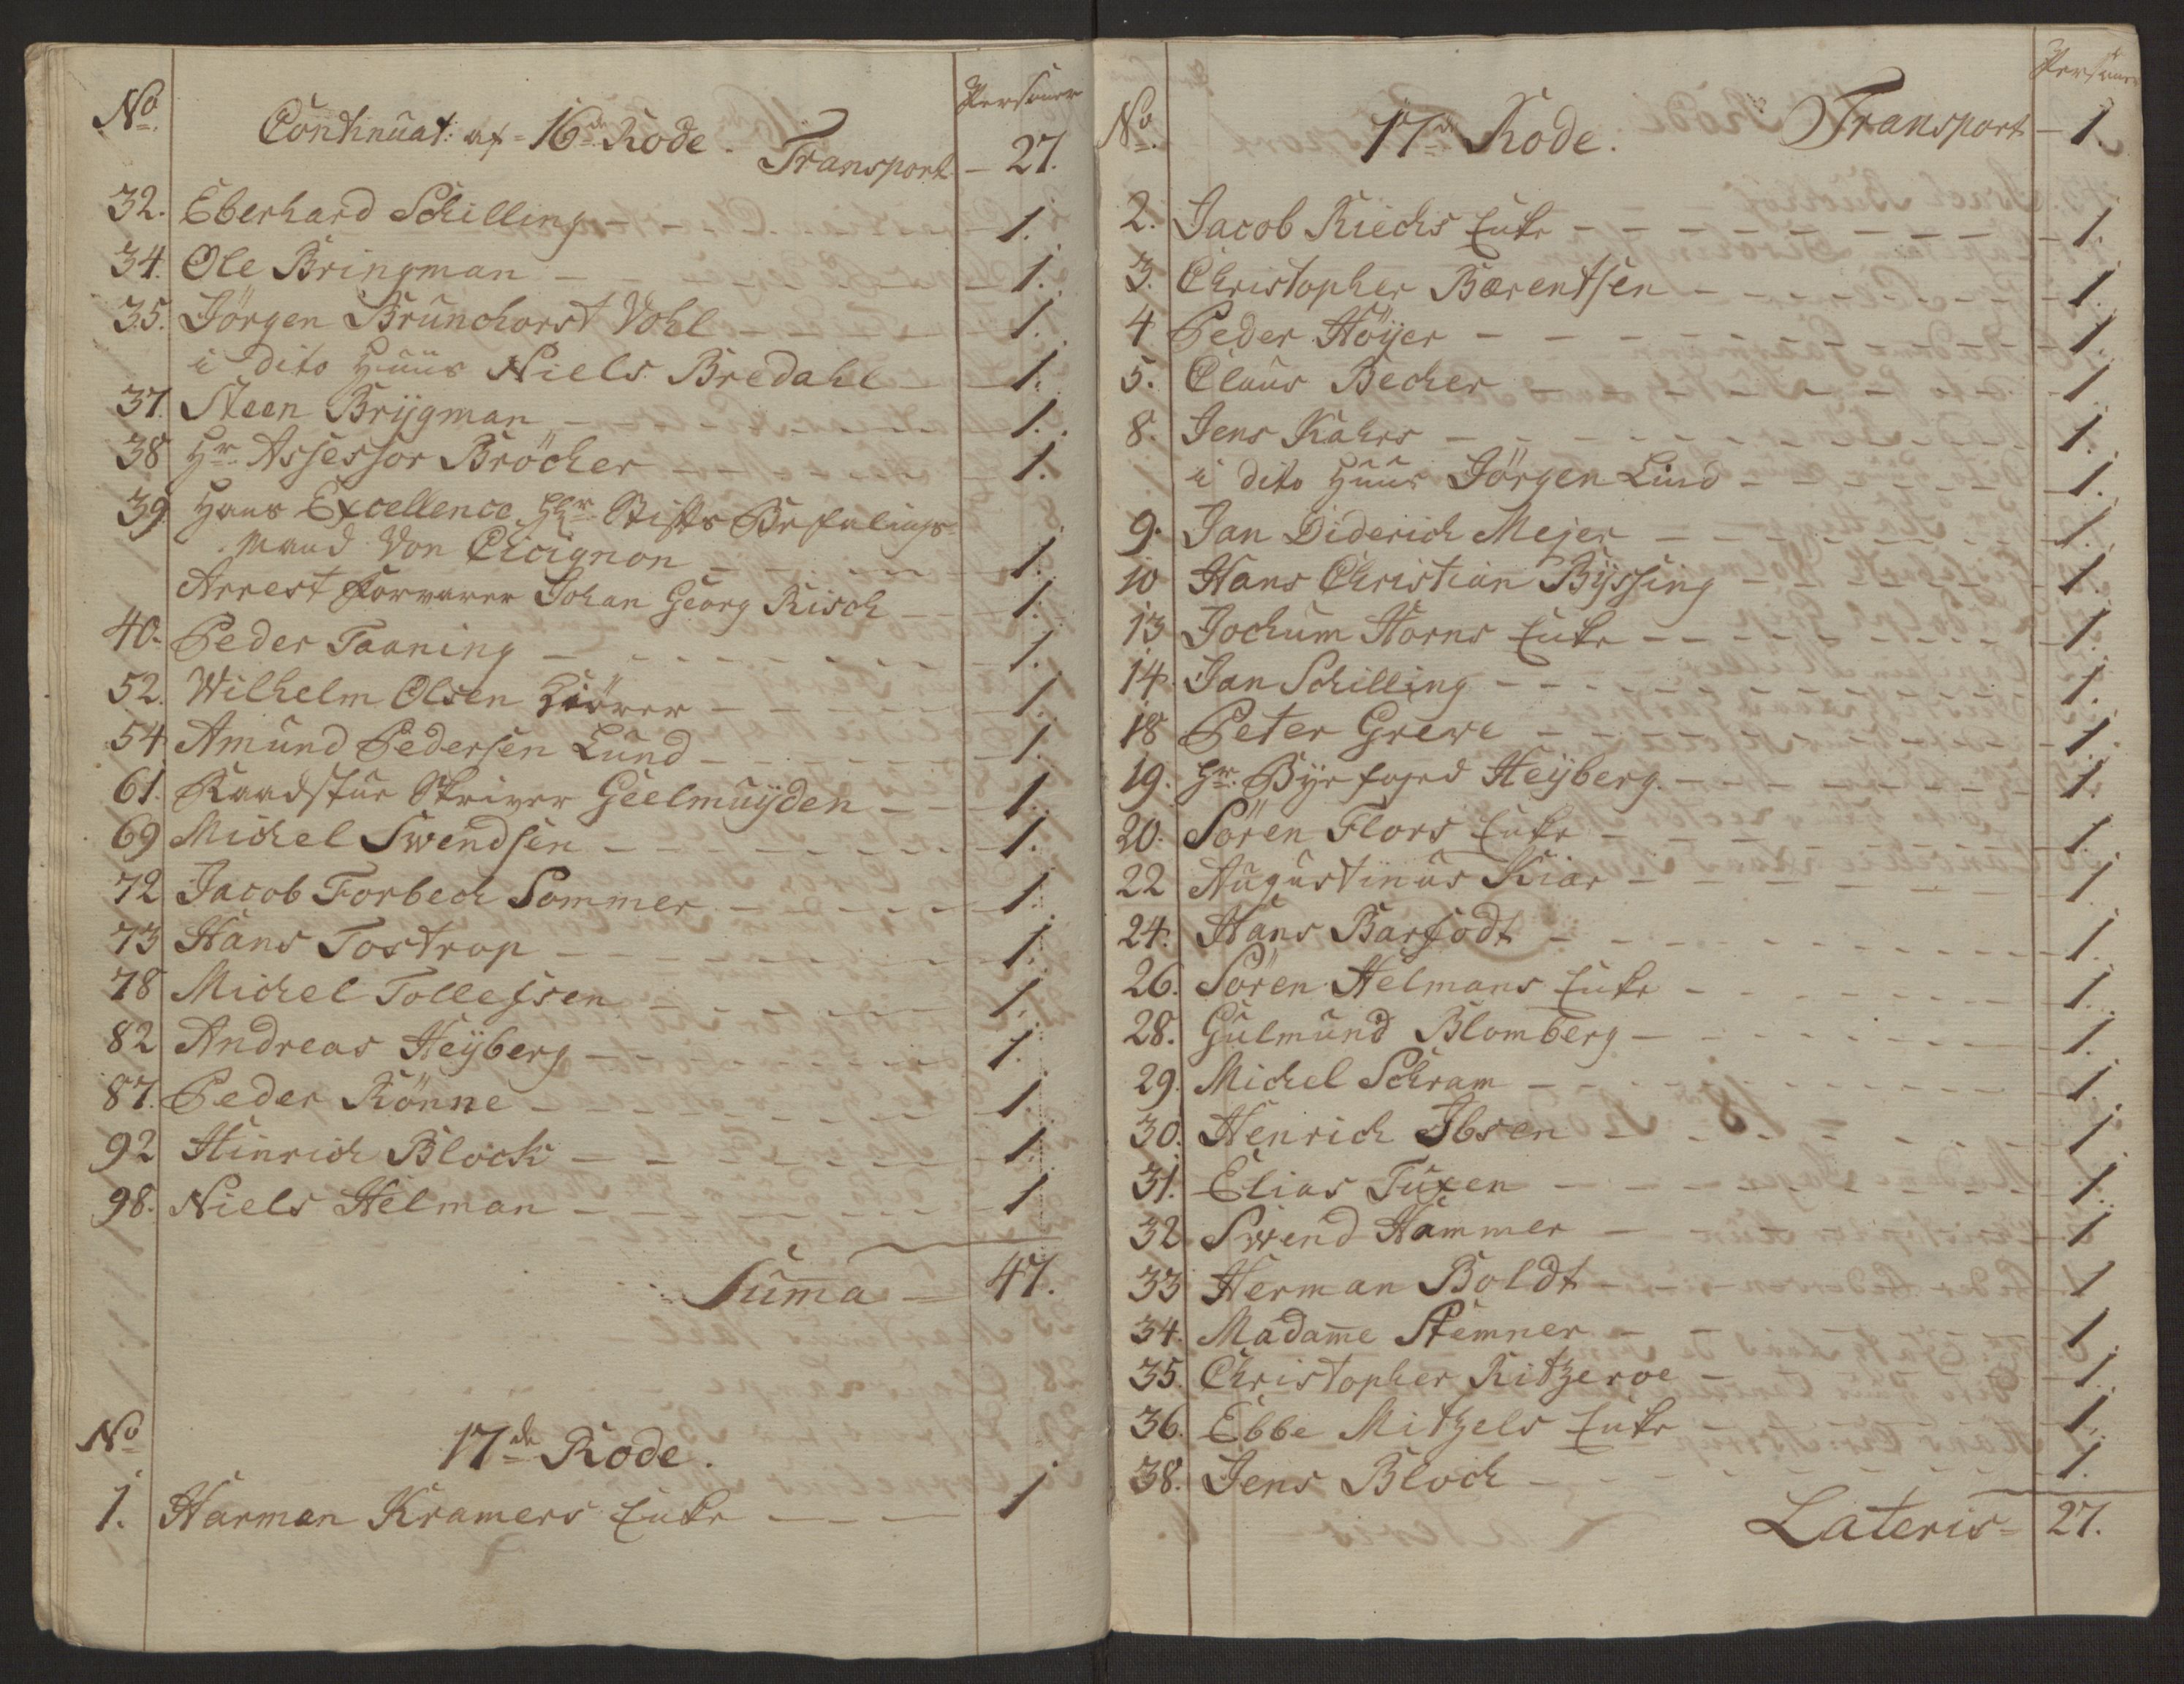 No Personer
Continuat: af 16de Rode.
Transport - 27.
32. Eberhard Schilling - 1.
34. Ole Bringman - 1.
35. Jörgen Brunchorst Vohl - 1.
i dito Huus Niels Bredahl - 1.
37. Steen Brÿgman - 1.
38 Hr. Assessor Bröcher - 1.
39. Hans Excellence Hr. Stifts Befalings-
Mand Von Cicignon - 1.
Arrest Forvarer Johan Georg Risch - 1.
40. Peder Taaning - 1.
52. Wilhelm Olsen - 1.
54 Amund Pedersen Lund - 1.
61. Raadstue Skriver Geelmuÿden - 1.
69 Michel Swendsen - 1.
72 Jacob Forbech Sommer - 1.
73 Hans Tostrop - 1.
78 Michel Tollefsen - 1.
82 Andreas Heÿberg - 1.
87. Peder Rönne - 1.
92 Hinrich Block - 1.
98. Niels Helman - 1
Suma = 47.
No 17de Rode.
1. Harman Kramers Enke - 1
No Personer
17de Rode. Transport - 1.
2. Jacob Riechs Enke - 1.
3. Christopher Bærentsen - 1.
4 Peder Höÿer - 1.
5. Claus Becher - 1
8. Jens Kahrs - 1.
i dito Huus Jörgen Lind - 1.
9. Jan Diderich Mejer - 1.
10 Hans Christian Bÿssing - 1.
13 Jochum Horns Enke - 1.
14. Jan Schilling - 1.
18 Peter Greve - 1.
19. Hr. Bÿe foged Heÿberg - 1.
20. Sören Flors Enke - 1.
22 Augustinus Kiær - 1
24. Hans Barfodt - 1.
26. Sören Helmans Enke - 1.
28. Gulmund Blomberg - 1.
29. Michel Schram - 1.
30. Henrich Ibsen - 1
31. Elias Tuxen - 1.
32 Swend Hammer - 1
33 Herman Boldt - 1
34. Madame Stemner - 1.
35. Christopher Ritzeroe - 1.
36. Ebbe Mitzels Enke - 1.
38. Jens Bloch - 1.
Lateris = 27.